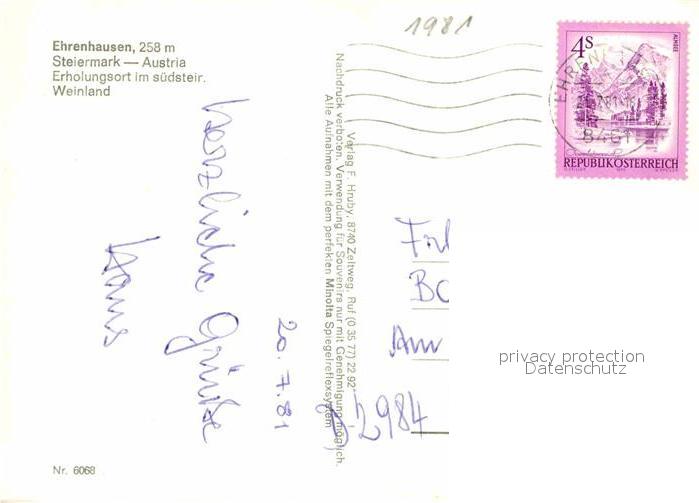 1981
Ehrenhausen, 258 m
Steiermark — Austria
Erholungsort im südsteir.
Weinland
4S
ALMSEE
REPUBLIK ÖSTERREICH
8461
Herzliche Grüße
Hans
20.7.81
Verlag F. Hruby, 8740 Zeltweg, Ruf (0 35 77) 22 92
Nachdruck verboten. Verwendung für Souvenirs nur mit Genehmigung möglich.
Alle Aufnahmen mit dem perfekten Minolta Spiegelreflexsystem
Am
2984
privacy protection
Datenschutz
Nr. 6068